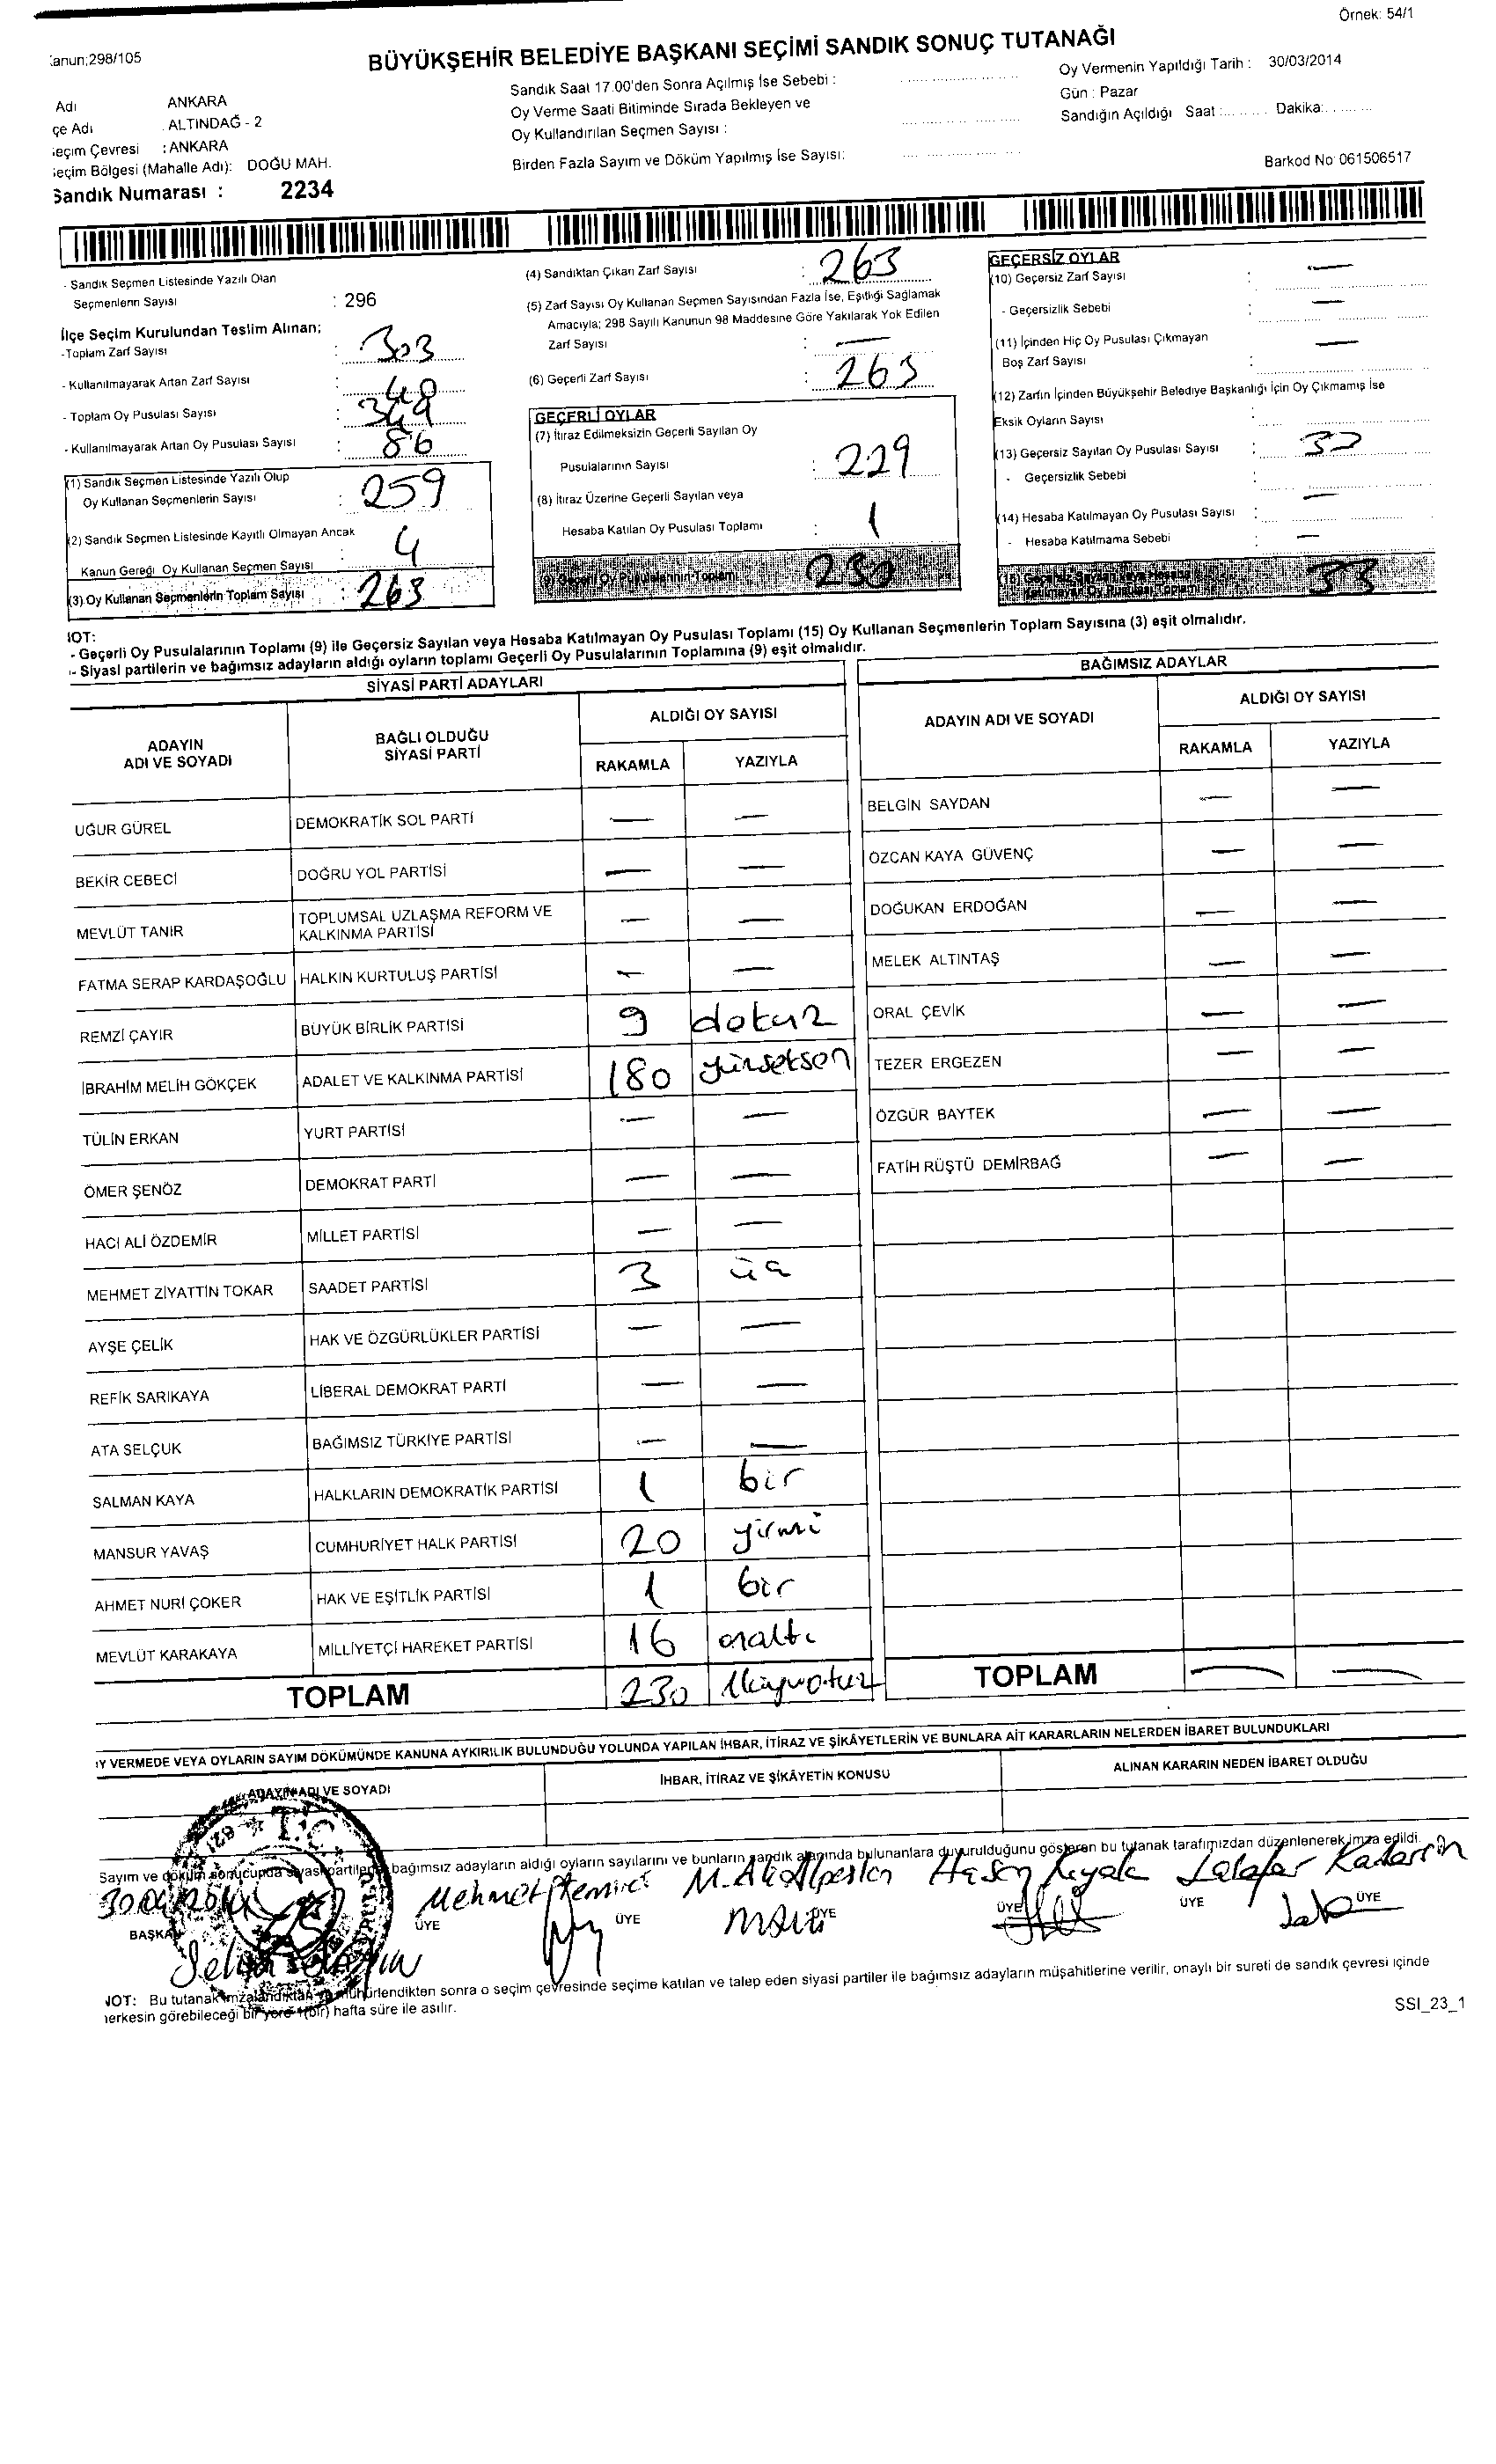 Örnek: 54/1
Kanun;298/105
BÜYÜKŞEHİR BELEDİYE BAŞKANI SEÇİMİ SANDIK SONUÇ TUTANAĞI
Adı ANKARA
çe Adı . ALTINDAĞ - 2
eçim Çevresi : ANKARA
eçim Bölgesi (Mahalle Adı): DOĞU MAH.
Sandık Numarası : 2234
Sandık Saat 17.00'den Sonra Açılmış İse Sebebi :
Oy Verme Saati Bitiminde Sırada Bekleyen ve
Oy Kullandırılan Seçmen Sayısı :
Birden Fazla Sayım ve Döküm Yapılmış İse Sayısı:
Oy Vermenin Yapıldığı Tarih : 30/03/2014
Gün : Pazar
Sandığın Açıldığı Saat :........ Dakika:..........
Barkod No 061506517
- Sandık Seçmen Listesinde Yazılı Olan
Seçmenlerin Sayısı : 296
İlçe Seçim Kurulundan Teslim Alınan;
-Toplam Zarf Sayısı : 303
- Kullanılmayarak Artan Zarf Sayısı : 40
- Toplam Oy Pusulası Sayısı : 349
- Kullanılmayarak Artan Oy Pusulası Sayısı : 86
(1) Sandık Seçmen Listesinde Yazılı Olup
Oy Kullanan Seçmenlerin Sayısı : 259
(2) Sandık Seçmen Listesinde Kayıtlı Olmayan Ancak
Kanun Gereği Oy Kullanan Seçmen Sayısı : 4
(3) Oy Kullanan Seçmenlerin Toplam Sayısı : 263
(4) Sandıktan Çıkan Zarf Sayısı : 263
(5) Zarf Sayısı Oy Kullanan Seçmen Sayısından Fazla İse, Eşitliği Sağlamak
Amacıyla; 298 Sayılı Kanunun 98 Maddesine Göre Yakılarak Yok Edilen
Zarf Sayısı : —
(6) Geçerli Zarf Sayısı : 263
GEÇERLİ OYLAR
(7) İtiraz Edilmeksizin Geçerli Sayılan Oy
Pusulalarının Sayısı : 229
(8) İtiraz Üzerine Geçerli Sayılan veya
Hesaba Katılan Oy Pusulası Toplamı : 1
(9) Geçerli Oy Pusulalarının Toplamı 230
GEÇERSİZ OYLAR
(10) Geçersiz Zarf Sayısı : —
- Geçersizlik Sebebi : —
(11) İçinden Hiç Oy Pusulası Çıkmayan
Boş Zarf Sayısı —
(12) Zarfın İçinden Büyükşehir Belediye Başkanlığı İçin Oy Çıkmamış İse
Eksik Oyların Sayısı :
(13) Geçersiz Sayılan Oy Pusulası Sayısı : 33
- Geçersizlik Sebebi :
(14) Hesaba Katılmayan Oy Pusulası Sayısı : —
- Hesaba Katılmama Sebebi : —
(15) Geçersiz Sayılan veya Hesaba
Katılmayan Oy Pusulası Toplamı 33
NOT:
- Geçerli Oy Pusulalarının Toplamı (9) ile Geçersiz Sayılan veya Hesaba Katılmayan Oy Pusulası Toplamı (15) Oy Kullanan Seçmenlerin Toplam Sayısına (3) eşit olmalıdır.
- Siyasi partilerin ve bağımsız adayların aldığı oyların toplamı Geçerli Oy Pusulalarının Toplamına (9) eşit olmalıdır.
SİYASİ PARTİ ADAYLARI
ADAYIN ADI VE SOYADI BAĞLI OLDUĞU SİYASİ PARTİ ALDIĞI OY SAYISI
RAKAMLA YAZIYLA
UĞUR GÜREL DEMOKRATİK SOL PARTİ — —
BEKİR CEBECİ DOĞRU YOL PARTİSİ — —
MEVLÜT TANIR TOPLUMSAL UZLAŞMA REFORM VE KALKINMA PARTİSİ — —
FATMA SERAP KARDAŞOĞLU HALKIN KURTULUŞ PARTİSİ — —
REMZİ ÇAYIR BÜYÜK BİRLİK PARTİSİ 9 dokuz
İBRAHİM MELİH GÖKÇEK ADALET VE KALKINMA PARTİSİ 180 yürseksen
TÜLİN ERKAN YURT PARTİSİ — —
ÖMER ŞENÖZ DEMOKRAT PARTİ — —
HACI ALİ ÖZDEMİR MİLLET PARTİSİ — —
MEHMET ZİYATTİN TOKAR SAADET PARTİSİ 3 üç
AYŞE ÇELİK HAK VE ÖZGÜRLÜKLER PARTİSİ — —
REFİK SARIKAYA LİBERAL DEMOKRAT PARTİ — —
ATA SELÇUK BAĞIMSIZ TÜRKİYE PARTİSİ — —
SALMAN KAYA HALKLARIN DEMOKRATİK PARTİSİ 1 bir
MANSUR YAVAŞ CUMHURİYET HALK PARTİSİ 20 yirmi
AHMET NURİ ÇOKER HAK VE EŞİTLİK PARTİSİ 1 bir
MEVLÜT KARAKAYA MİLLİYETÇİ HAREKET PARTİSİ 16 onaltı
TOPLAM 230
BAĞIMSIZ ADAYLAR
ADAYIN ADI VE SOYADI ALDIĞI OY SAYISI
RAKAMLA YAZIYLA
BELGİN SAYDAN — —
ÖZCAN KAYA GÜVENÇ — —
DOĞUKAN ERDOĞAN — —
MELEK ALTINTAŞ — —
ORAL ÇEVİK — —
TEZER ERGEZEN — —
ÖZGÜR BAYTEK — —
FATİH RÜŞTÜ DEMİRBAĞ — —
TOPLAM — —
OY VERMEDE VEYA OYLARIN SAYIM DÖKÜMÜNDE KANUNA AYKIRILIK BULUNDUĞU YOLUNDA YAPILAN İHBAR, İTİRAZ VE ŞİKÂYETLERİN VE BUNLARA AİT KARARLARIN NELERDEN İBARET BULUNDUKLARI
ADAYIN ADI VE SOYADI İHBAR, İTİRAZ VE ŞİKÂYETİN KONUSU ALINAN KARARIN NEDEN İBARET OLDUĞU
Sayım ve döküm sonucunda siyasi partilerin bağımsız adayların aldığı oyların sayılarını ve bunların sandık alanında bulunanlara duyurulduğunu gösteren bu tutanak tarafımızdan düzenlenerek imza edildi.
Mehmet M. Ali Alpaslan Hasan
BAŞKAN ÜYE ÜYE ÜYE ÜYE ÜYE ÜYE
NOT: Bu tutanak imzalandıktan ve mühürlendikten sonra o seçim çevresinde seçime katılan ve talep eden siyasi partiler ile bağımsız adayların müşahitlerine verilir, onaylı bir sureti de sandık çevresi içinde
herkesin görebileceği bir yere 1(bir) hafta süre ile asılır.
SSI_23_1